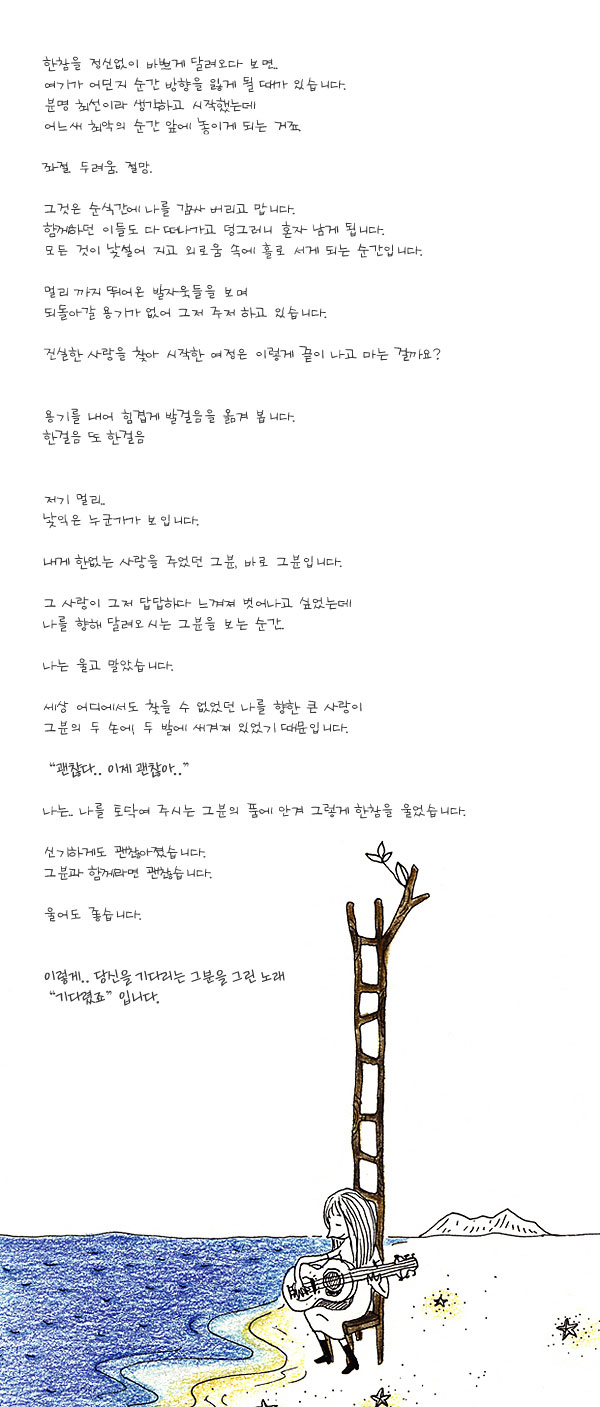 한참을 정신없이 바쁘게 달려오다 보면..
여기가 어딘지 순간 방향을 잃게 될 때가 있습니다.
분명 최선이라 생각하고 시작했는데
어느새 최악의 순간 앞에 놓이게 되는 거죠.
좌절. 두려움. 절망.
그것은 순식간에 나를 감싸 버리고 맙니다.
함께하던 이들도 다 떠나가고 덩그러니 혼자 남게 됩니다.
모든 것이 낯설어 지고 외로움 속에 홀로 서게 되는 순간입니다.
멀리 까지 뛰어온 발자욱들을 보며
되돌아갈 용기가 없어 그저 주저 하고 있습니다.
진실한 사랑을 찾아 시작한 여정은 이렇게 끝이 나고 마는 걸까요?
용기를 내어 힘겹게 발걸음을 옮겨 봅니다.
한걸음 또 한걸음
저기 멀리..
낯익은 누군가가 보입니다.
내게 한없는 사랑을 주었던 그분, 바로 그분입니다.
그 사랑이 그저 답답하다 느껴져 벗어나고 싶었는데
나를 향해 달려오시는 그분을 보는 순간.
나는 울고 말았습니다.
세상 어디에서도 찾을 수 없었던 나를 향한 큰 사랑이
그분의 두 손에, 두 발에 새겨져 있었기 때문입니다.
“괜찮다.. 이제 괜찮아..”
나는.. 나를 토닥여 주시는 그분의 품에 안겨 그렇게 한참을 울었습니다.
신기하게도 괜찮아졌습니다.
그분과 함께라면 괜찮습니다.
울어도 좋습니다.
이렇게.. 당신을 기다리는 그분을 그린 노래
“기다렸죠” 입니다.